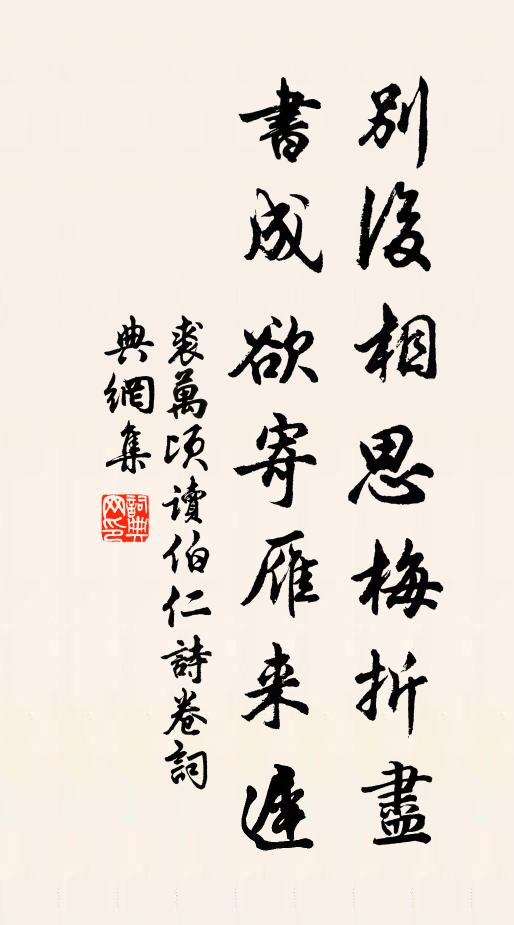 別後相思梅折盡
書成欲寄雁来遲
裘萬頃讀伯仁詩卷詞
典網集
詞典
网印